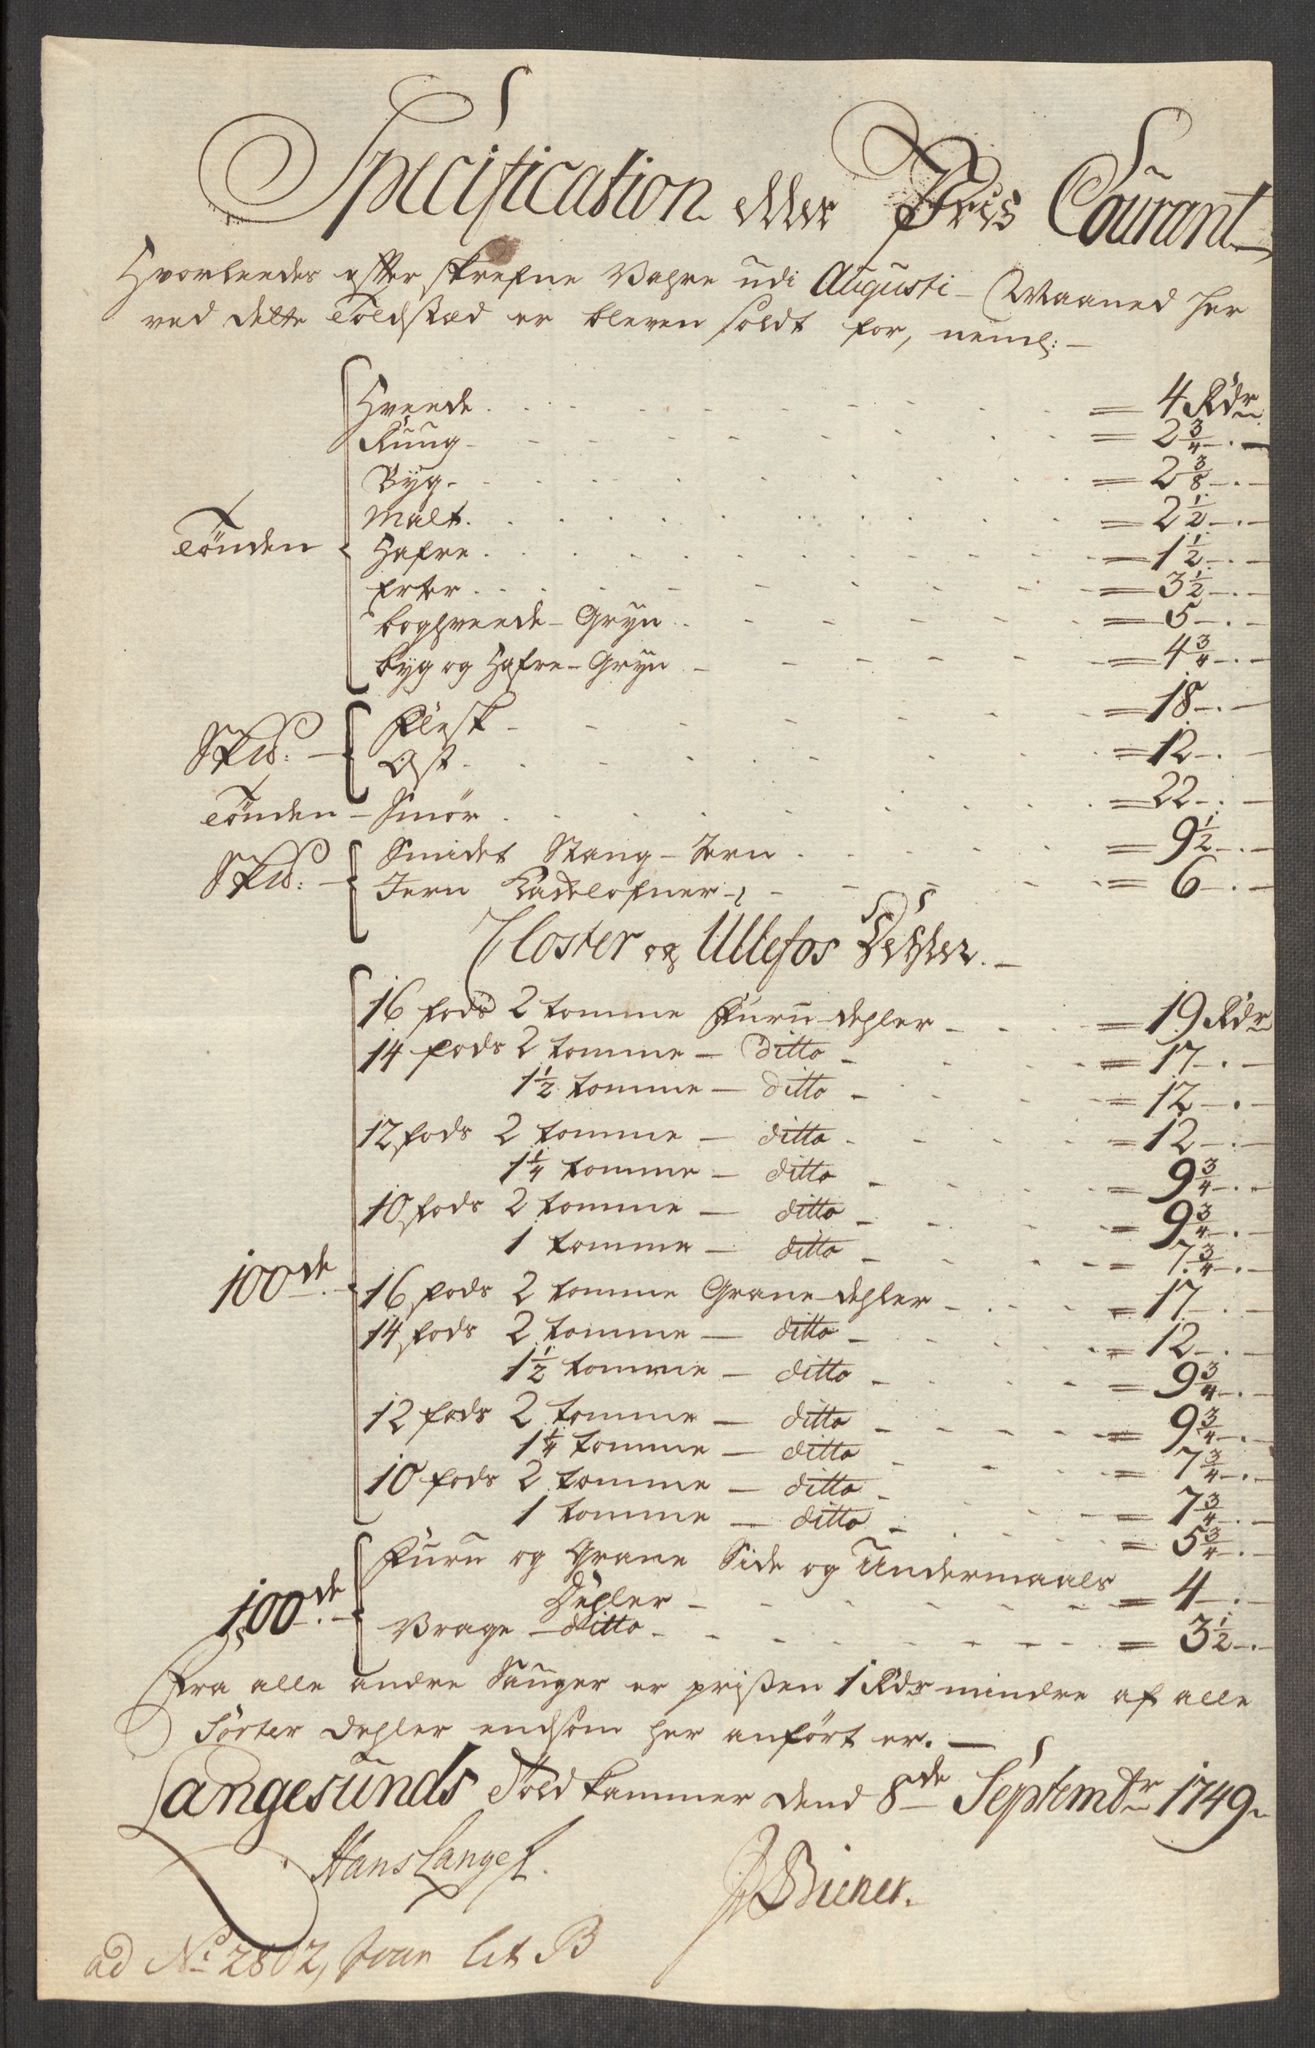 Specification eller Pris Courant
Hvorleedes efterskrefne Vahre udi Augusti Maaned her
ved dette Toldstæd er bleven soldt for, neml:
Tönden
Hveede = 4 Rdr
Rüng = 2 3/4 -.-
Byg = 2 3/8 -.-
Malt = 2 1/2 -.-
Hafre = 1 1/2 -.-
Erter = 3 1/2 -.-
boghveede Gryn = 5 -.-
byg og Hafre-Gryn = 4 3/4 -.-
Skd:
Flesk = 18 -.-
Ost = 12 -.-
Tönden - Smör = 22 -.-
Skd:
Smidet Stang-Jern = 9 1/2 -.-
Jern Kackelofner = 6 -.-
Closter og Ullefos Dehler
100de
16 fods 2 tomme Furu-dehler = 19 Rdr
14 fods 2 tomme - ditto = 17 -.-
1 1/2 tomme - ditto = 12 -.-
12 fods 2 tomme - ditto = 12 -.-
1 1/4 tomme - ditto = 9 3/4 -.-
10 fods 2 tomme - ditto = 9 3/4 -.-
1 tomme - ditto = 7 3/4 -.-
16 fods 2 tomme Grane-dehler = 17 -.-
14 fods 2 tomme - ditto = 12 -.-
1 1/2 tomme - ditto = 9 3/4 -.-
12 fods 2 tomme - ditto = 9 3/4 -.-
1 1/4 tomme - ditto = 7 3/4 -.-
10 fods 2 tomme - ditto = 7 3/4 -.-
1 tomme - ditto = 5 3/4 -.-
100de
Furu og Grane Side og Undermaals
Dehler = 4 -.-
Vrage - ditto = 3 1/2 -.-
Fra alle andre Sauger er prisen 1 Rdr mindre af alle
Sorter dehler endsom her anfört er. -
Langesunds Told kammer dend 8de Septembr 1749.
Hans Lange
Biener.
ad No 2802, lit B